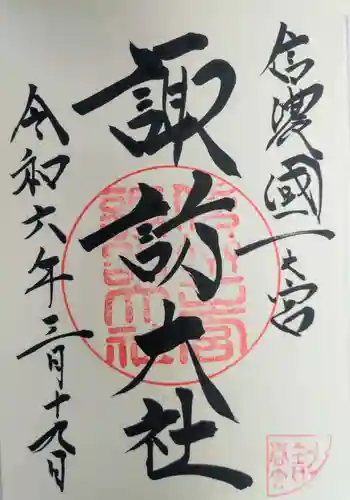 信濃國一之宮
諏訪大社
令和六年三月十九日